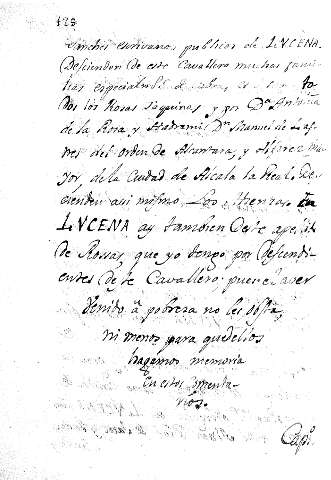 123
Sanches escrivano publico de LVCENA.
Descienden de este Cavallero muchas fami
lias especialmte
dos los Rosas Saquinas, y por Da. Antonia
de la Rosa, y Dn. Manuel de
del orden de Alcantara, y Alferez Ma
yor de la Ciudad de Alcala la Real. De
cienden asi mismo Los Atienzas. En
LVCENA ay tambien deste apellido
de Rossas, que yo tengo por descendi
entes deste Cavallero; pues el aver
venido á pobreza no les obsta,
ni menos para que dellos
hagamos memoria
en estos comenta
rios.
Capo.